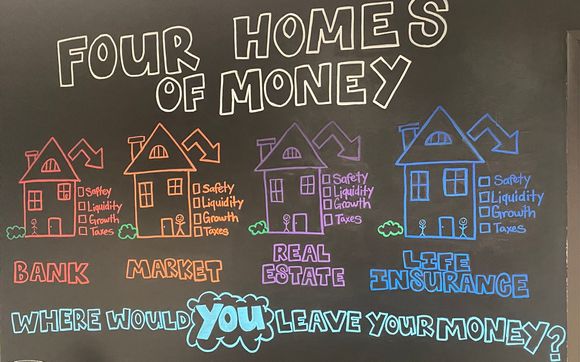 FOUR HOMES
OF MONEY
Saftey
Liquidity
Growth
Taxes
BANK
Safety
Liquidity
Growth
Taxes
MARKET
Safety
Liquidity
Growth
Taxes
REAL
ESTATE
Safety
Liquidity
Growth
Taxes
LIFE
INSURANCE
WHERE WOULD YOU LEAVE YOUR MONEY?